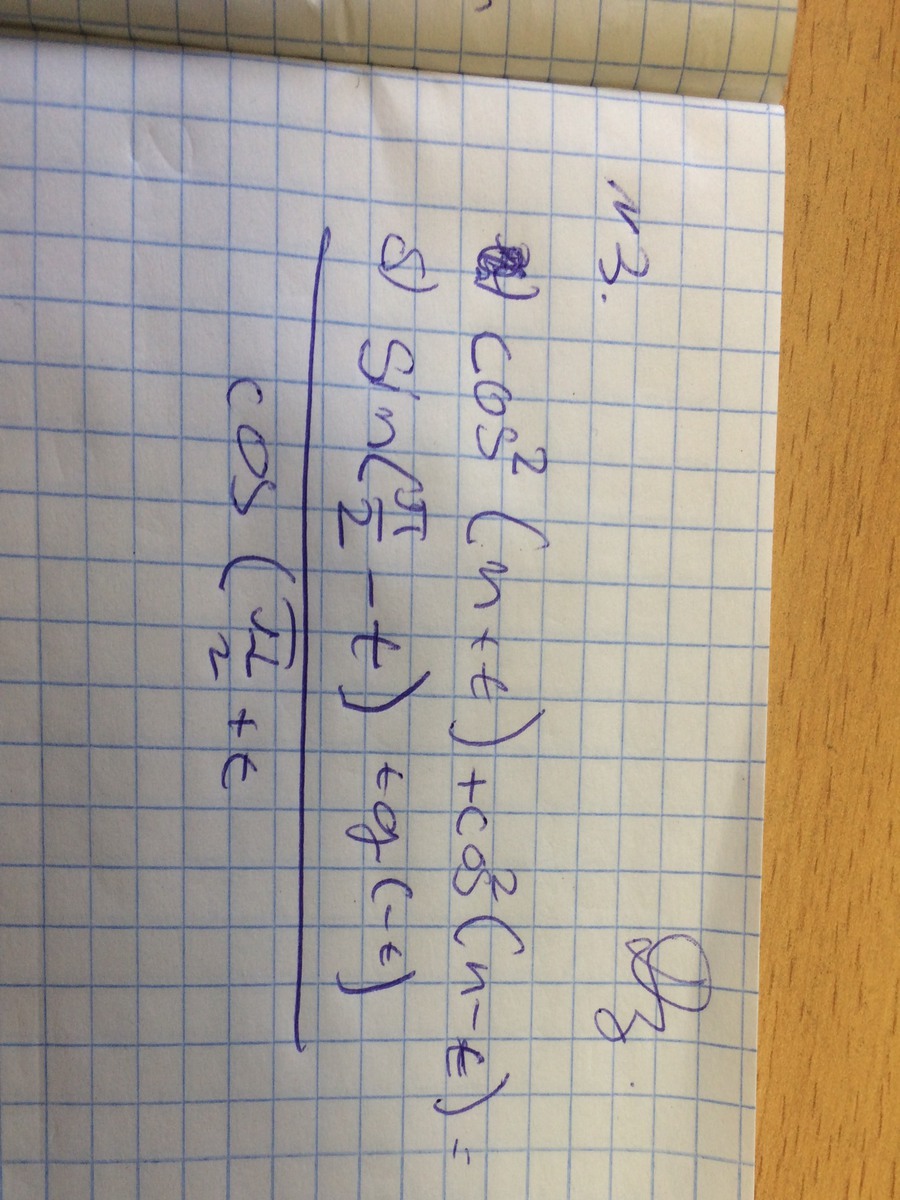 Дз.
N 3.
) cos² (π + t) + cos² (π - t) =
б) Sin(π/2 - t) tg (-t)
cos (π/2 + t